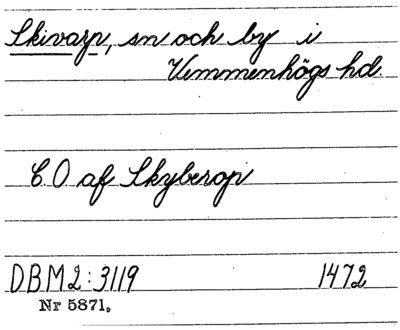 Skivarp, sn och by i
Vemmenhögs hd.
C.O af Skyberop
DBM2:3119 1472
Nr 5871.